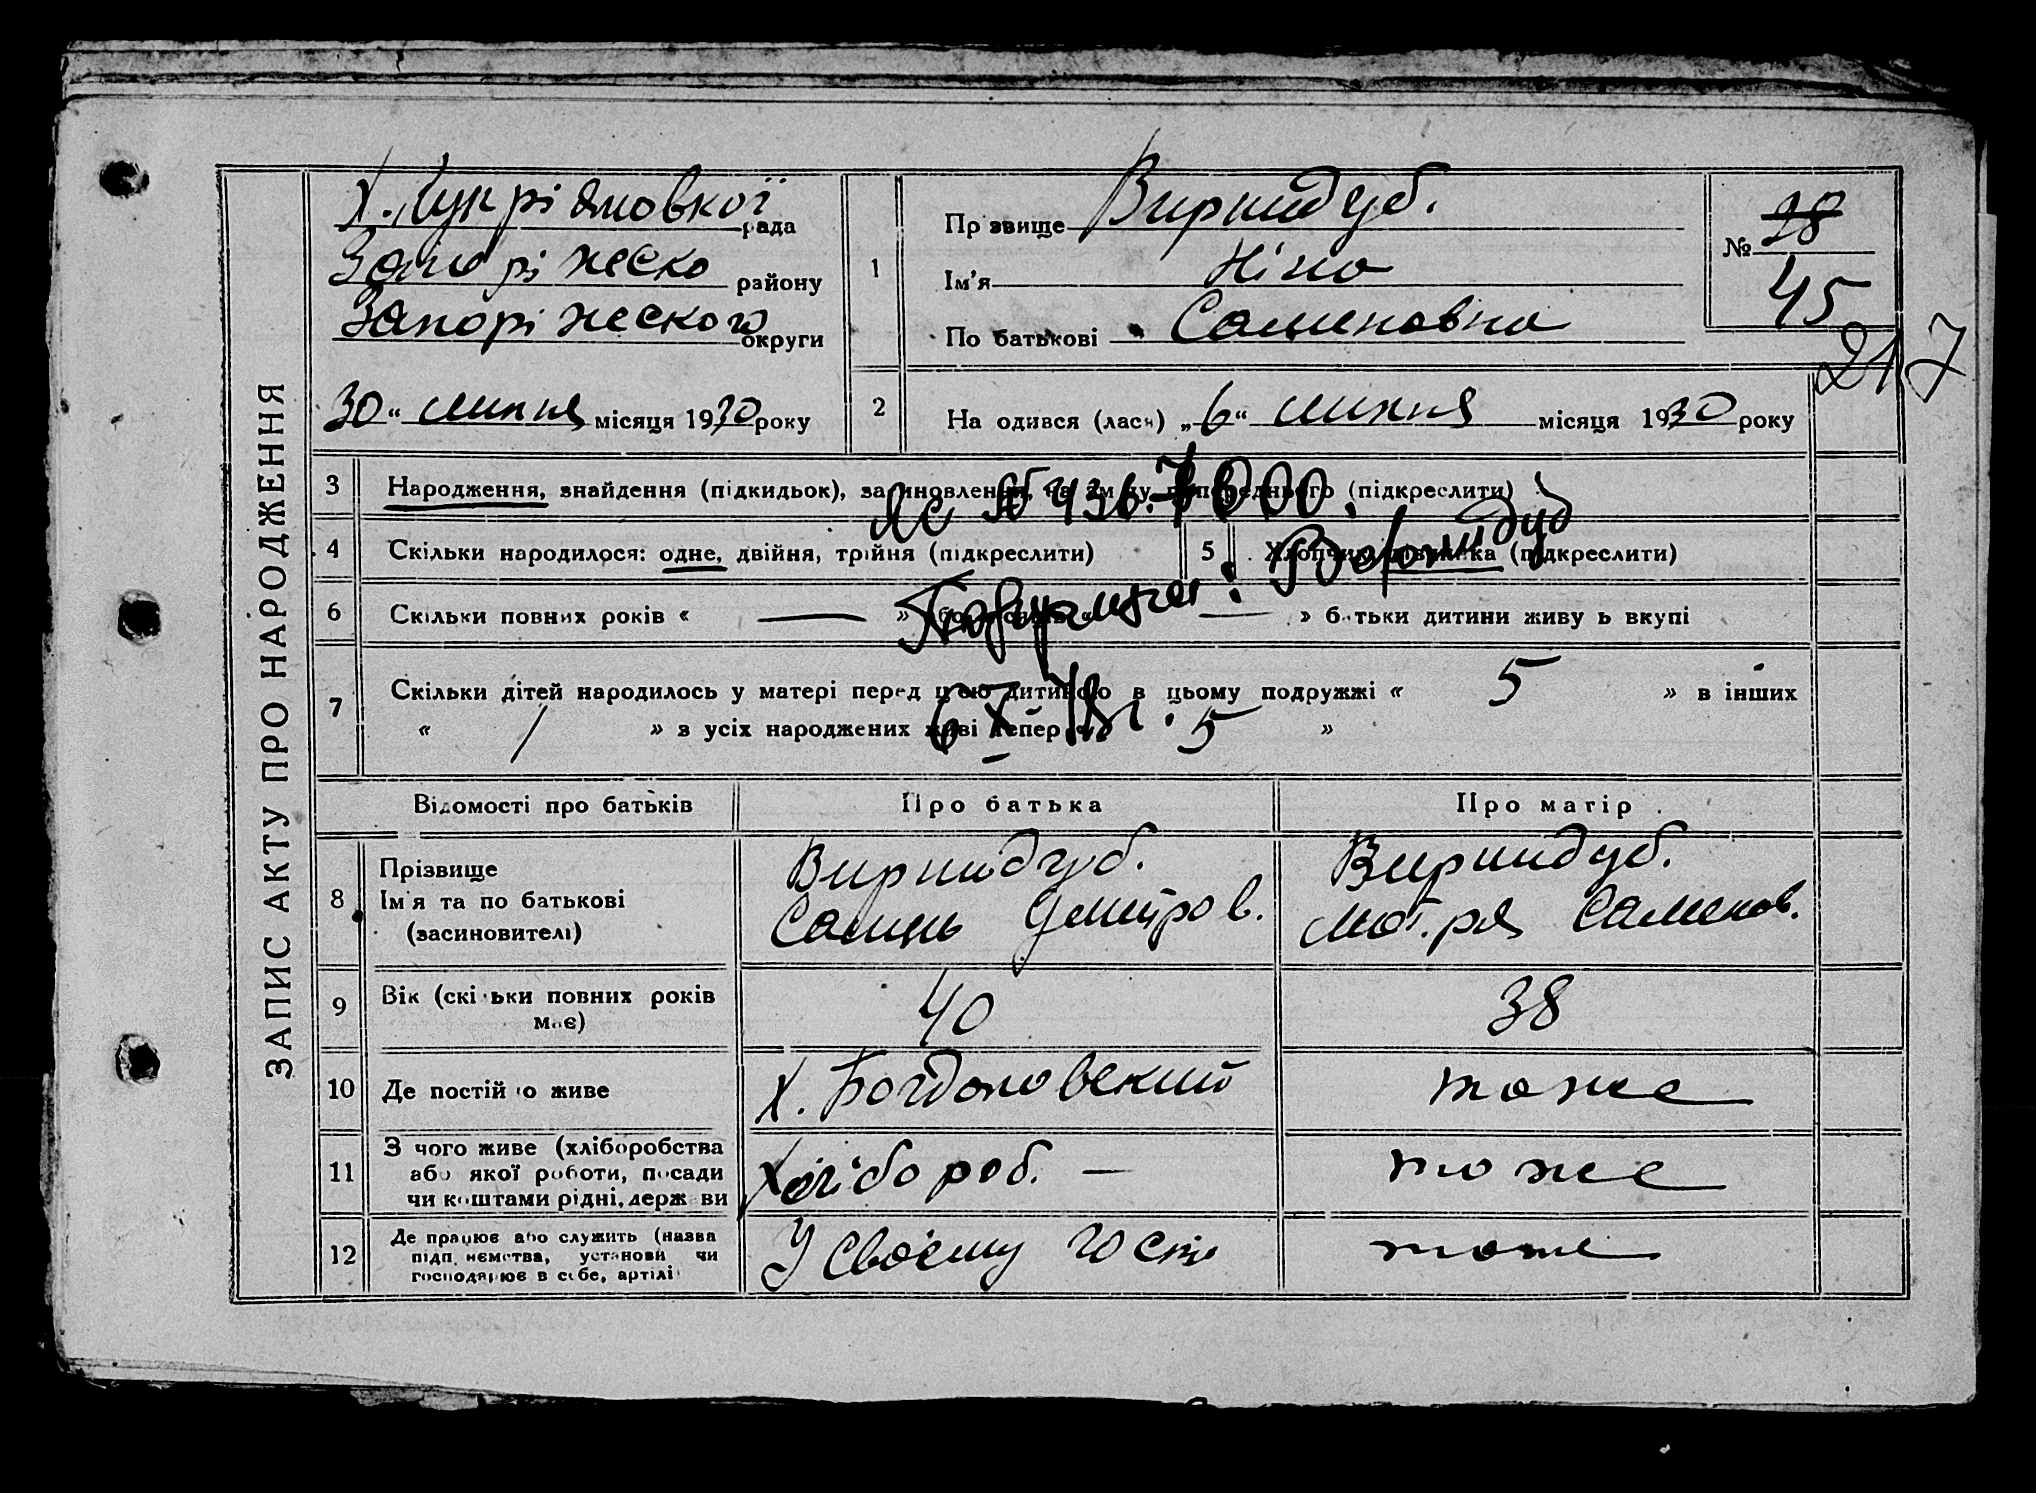 ЗАПИС АКТУ ПРО НАРОДЖЕННЯ
рада
району
Запоріжского округи
30 " липня місяця 1930 року
1
Прізвище Вирнидуб.
Ім'я Ніна
По батькові Семеновна
№ 28
45
217
2
На одився (лась) „ 6 " липня місяця 1930 року
3 Народження, знайдення (підкидьок), засиновлення, на зміну попереднього (підкреслити)
4 Скільки народилося: одне, двійня, трійня (підкреслити)
5 Хлопчик, дівчинка (підкреслити)
6 Скільки повних років « — » — » батьки дитини живуть вкупі
7 Скільки дітей народилось у матері перед цією дитиною в цьому подружжі « 5 » в інших
« / » з усіх народжених живі тепер « 5 »
Відомості про батьків
Про батька
Про матір
8 Прізвище
Ім'я та по батькові
(засиновителі)
Вирнидуб.
Дмитров.
Вирнидуб.
Мотря Семенов.
9 Вік (скільки повних років
має)
40
38
10 Де постійно живе
Х. Богдановский
тоже
11 З чого живе (хліборобства
або якої роботи, посади
чи коштами рідні, держави
Хлібороб. —
тоже
12 Де працює або служить (назва
підприємства, установи чи
господарює в себе, артілі
У своєму
тоже